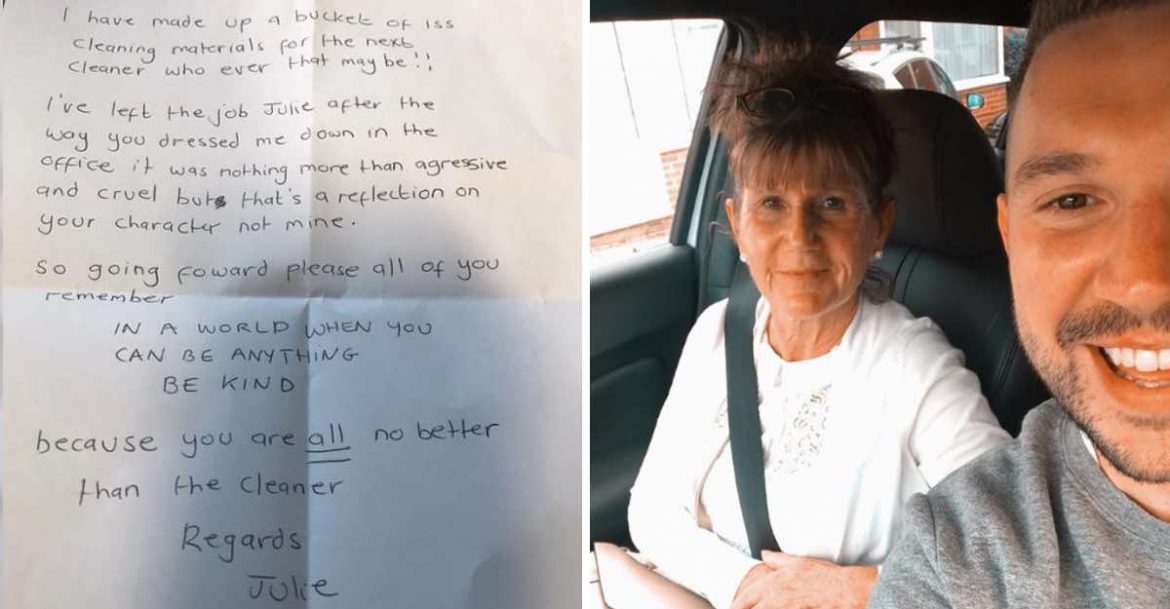 I have made up a bucket of iss
cleaning materials for the next
cleaner who ever that may be!!
I've left the job Julie after the
way you dressed me down in the
office it was nothing more than agressive
and cruel but that's a reflection on
your character not mine.
So going foward please all of you
remember
IN A WORLD WHEN YOU
CAN BE ANYTHING
BE KIND
because you are all no better
than the cleaner
Regards
Julie